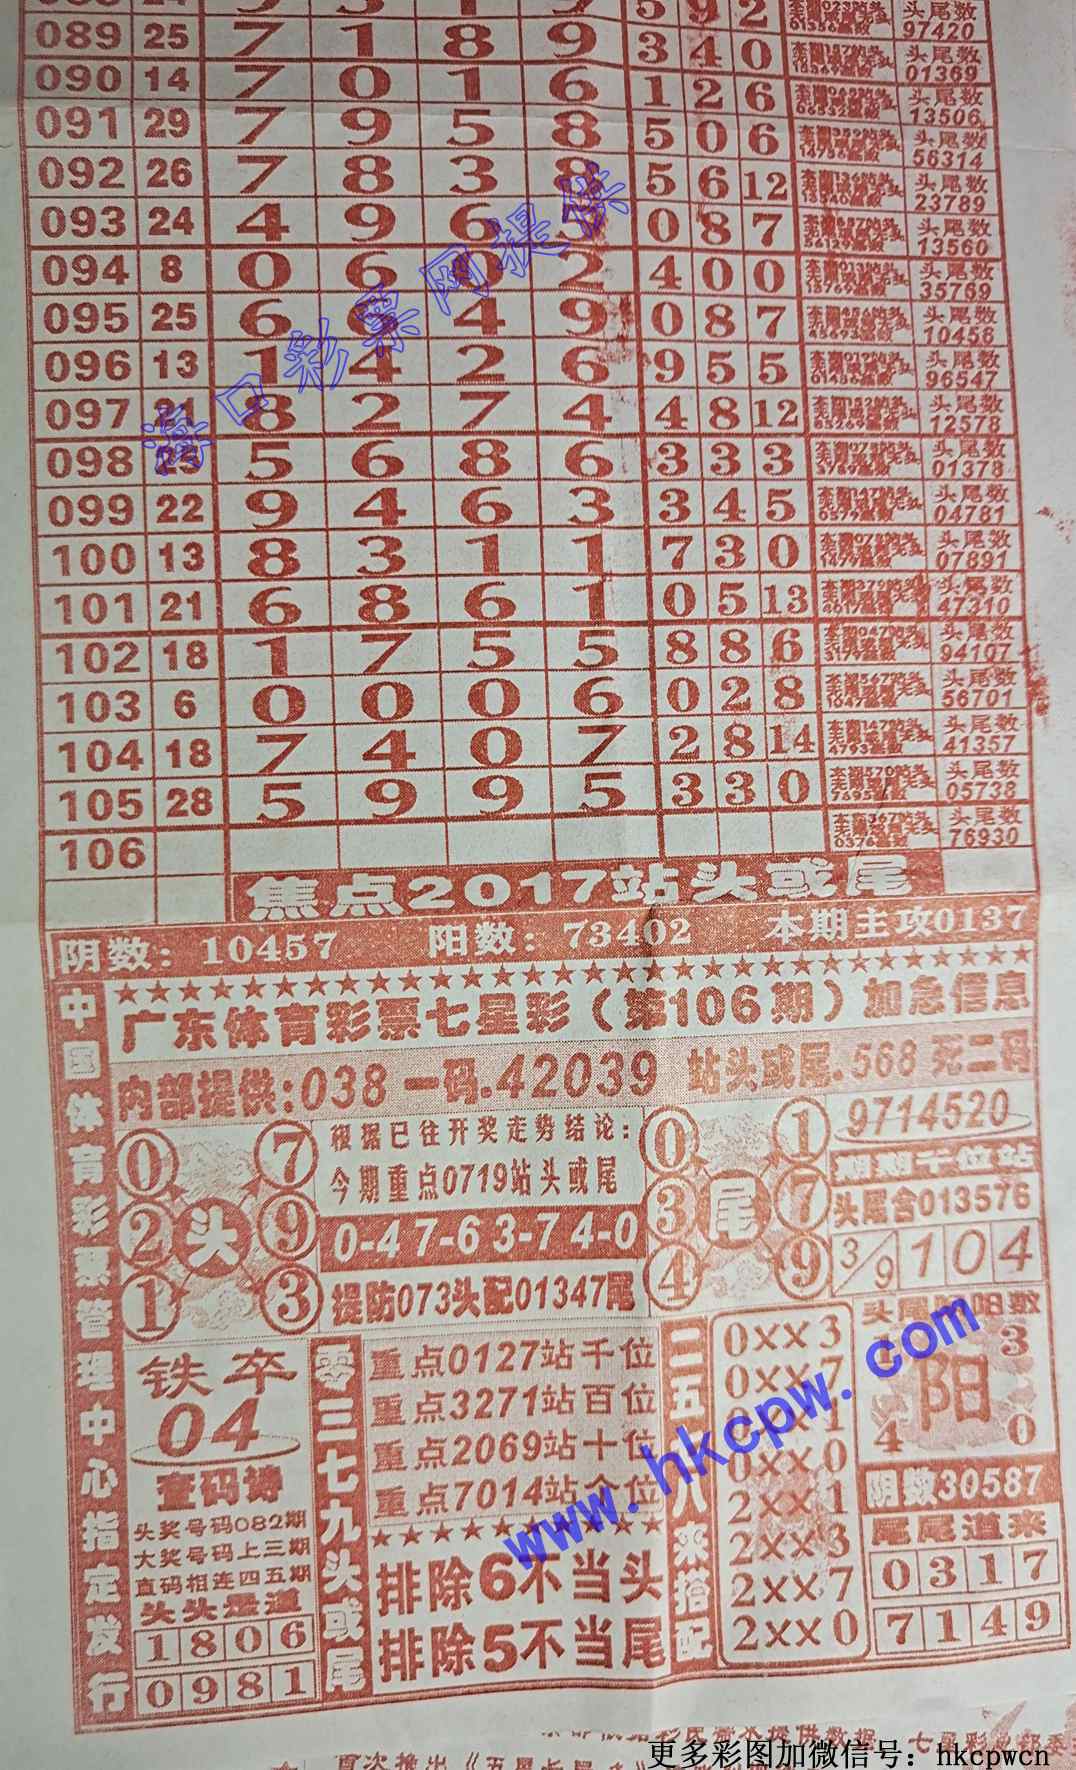 9 2 头尾数
97420
089 25 7 1 8 9 3 4 0 头尾数
01369
090 14 7 0 1 6 1 2 6 头尾数
13506
091 29 7 9 5 8 5 0 6 头尾数
56314
092 26 7 8 3 8 5 6 12 头尾数
23789
093 24 4 9 6 5 0 8 7 头尾数
13560
094 8 0 6 0 2 4 0 0 头尾数
35769
095 25 6 6 4 9 0 8 7 头尾数
10458
096 13 1 4 2 6 9 5 5 头尾数
96547
097 21 8 2 7 4 4 8 12 头尾数
12578
098 25 5 6 8 6 3 3 3 头尾数
01378
099 22 9 4 6 3 3 4 5 头尾数
04781
100 13 8 3 1 1 7 3 0 头尾数
07891
101 21 6 8 6 1 0 5 13 头尾数
47310
102 18 1 7 5 5 8 8 6 头尾数
94107
103 6 0 0 0 6 0 2 8 头尾数
56701
104 18 7 4 0 7 2 8 14 头尾数
41357
105 28 5 9 9 5 3 3 0 头尾数
05738
106 头尾数
76930
海口彩票网提供
焦点2017站头或尾
阴数：10457 阳数：73402 本期主攻0137
中国体育彩票管理中心指定发行
★★★★★★★★★★★★★★★★★★★★★★★★★★★★★
广东体育彩票七星彩（第106期）加急信息
内部提供:038一码.42039 站头或尾.568 死二码
0 7
2 头 9
1 3
根据已往开奖走势结论：
今期重点0719站头或尾
0-47-63-74-0
提防073头配01347尾
0 1
3 尾 7
4 9
9714520
期期千位站
头尾含013576
3/9 1 0 4
铁卒
04
查码诗
头奖号码082期
大奖号码上三期
直码相连四五期
头头是道
1 8 0 6
0 9 8 1
零三七九头或尾
重点0127站千位
重点3271站百位
重点2069站十位
重点7014站个位
★★★★★★★★★★★
排除6不当头
排除5不当尾
二五八来搭配
0××3
0××7
0××1
0××0
2××1
2××3
2××7
2××0
头尾阴阳数
3
阳
4 0
阴数30587
尾尾道来
0 3 1 7
7 1 4 9
www.hkcpw.com
更多彩图加微信号：hkcpwcn